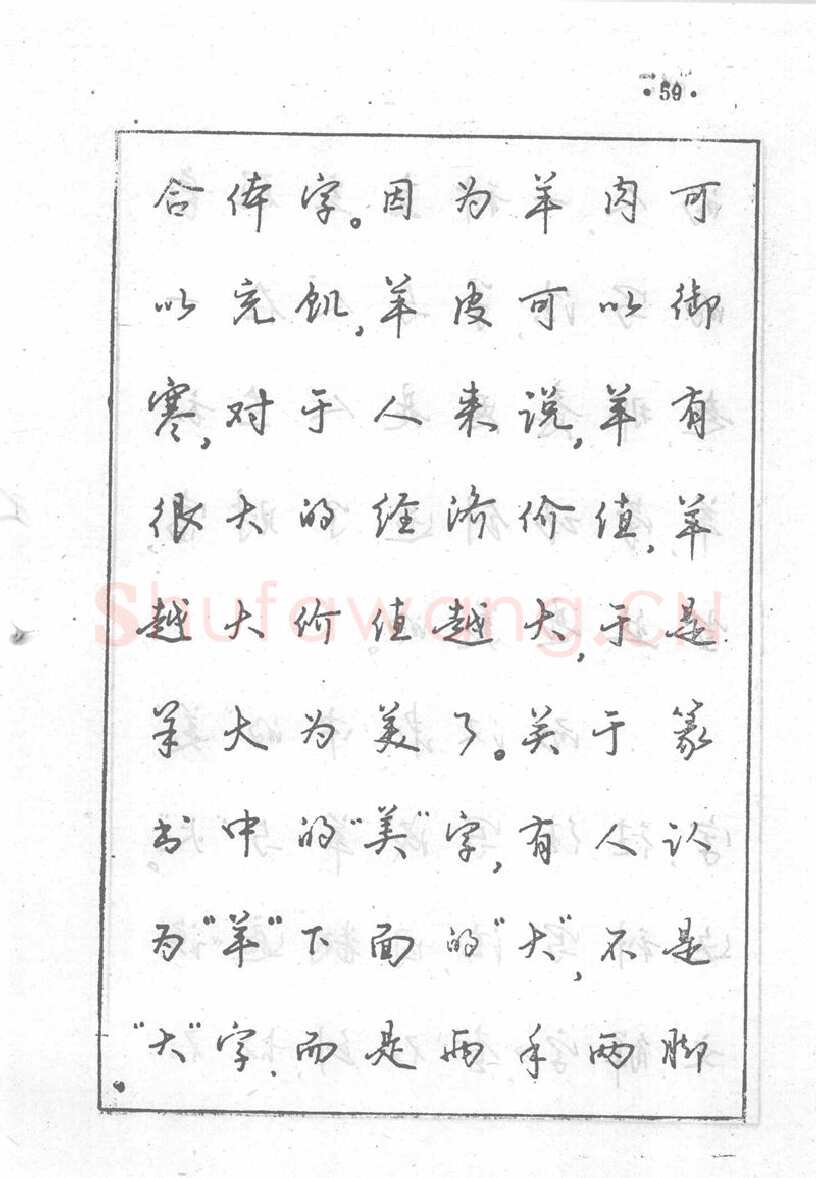 ·59·
合体字。因为羊肉可
以充饥,羊皮可以御
寒,对于人来说,羊有
很大的经济价值,羊
越大价值越大,于是
羊大为美了。关于篆
书中的“美”字,有人认
为“羊”下面的“大”,不是
“大”字,而是两手两脚
Shufawang.CN